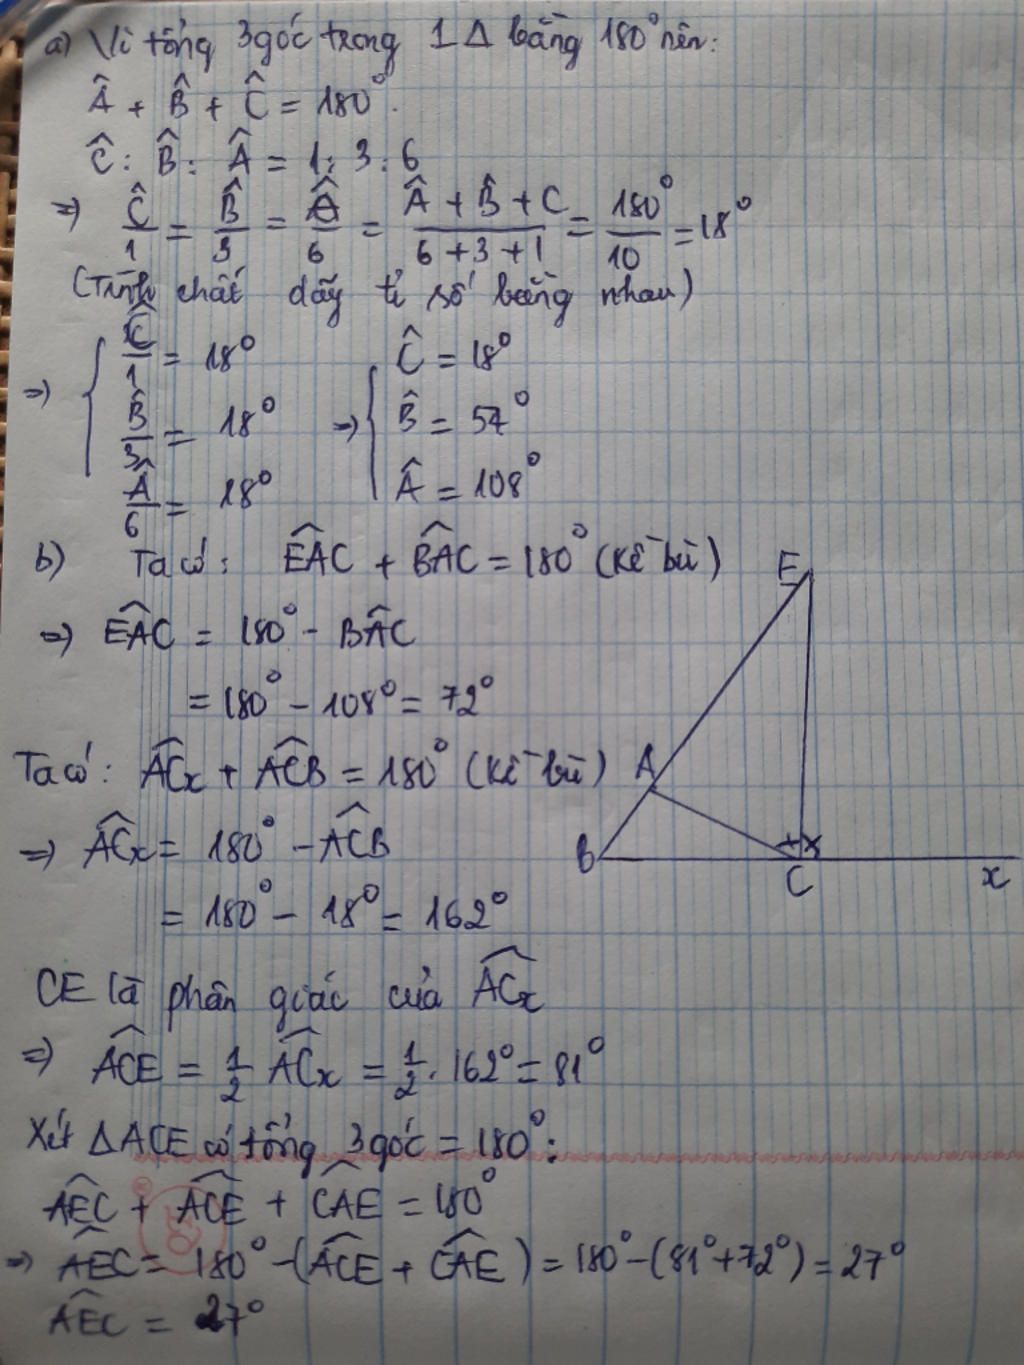 a) Vì tổng 3 góc trong 1 Δ bằng 180° nên:
Â + B̂ + Ĉ = 180°.
Ĉ : B̂ : Â = 1 : 3 : 6
=> Ĉ/1 = B̂/3 = Â/6 = (Â + B̂ + C)/(6 + 3 + 1) = 180°/10 = 18°
(Tính chất dãy tỉ số bằng nhau)
=> { Ĉ/1 = 18° => { Ĉ = 18°
B̂/3 = 18° B̂ = 54°
Â/6 = 18° Â = 108°
b) Ta có: EÂC + BÂC = 180° (Kề bù)
=> EÂC = 180° - BÂC
= 180° - 108° = 72°
Ta có: AĈx + AĈB = 180° (Kề bù)
=> AĈx = 180° - AĈB
= 180° - 18° = 162°
CE là phân giác của AĈx
=> AĈE = 1/2 AĈx = 1/2 . 162° = 81°
Xét ΔACE có tổng 3 góc = 180°:
AÊC + AĈE + CÂE = 180°
=> AÊC = 180° - (AĈE + CÂE) = 180° - (81° + 72°) = 27°
AÊC = 27°
E
A
B
C
x